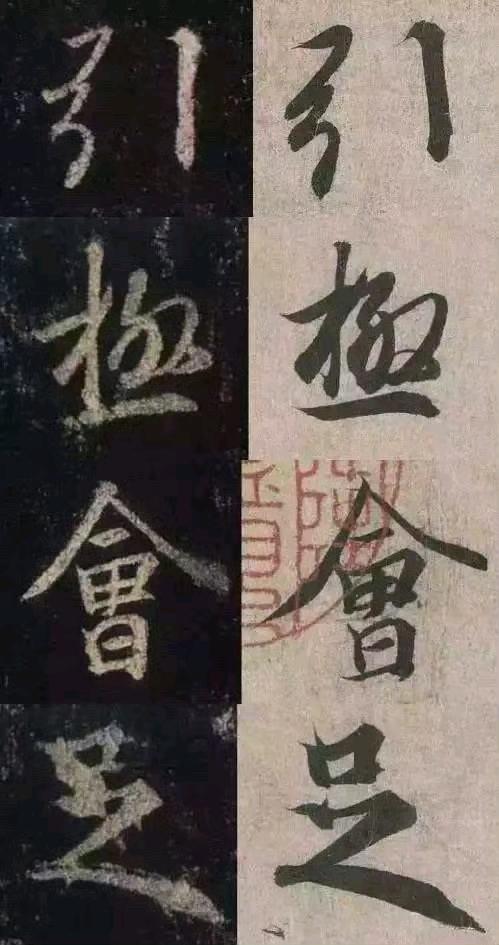 引引
極極
會會
足足